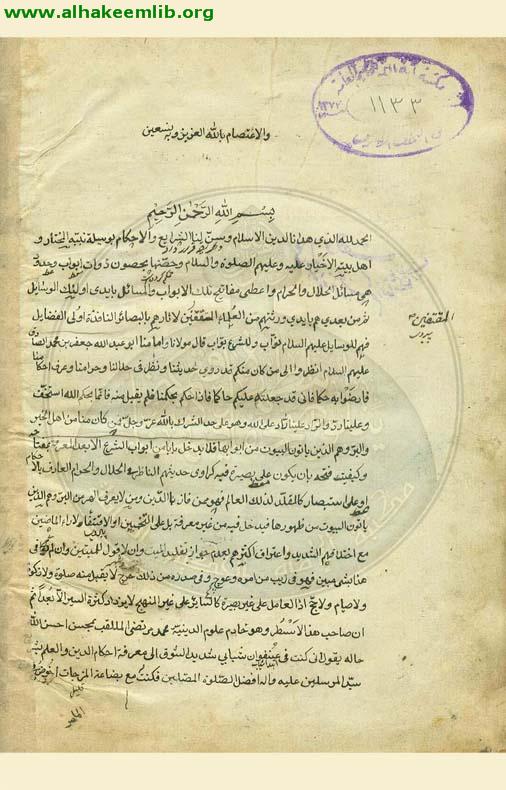 www.alhakeemlib.org
١١٣٣
والاعتصام بالله العزيز وبه نستعين
بسم الله الرحمن الرحيم
الحمد لله الذي هدانا لدين الاسلام وسن لنا الشرايع والاحكام بوسيلة نبيه المختار و
اهل بيته الاخيار عليه وعليهم الصلوة والسلام وحصنها بحصون ذوات ابواب
هي مسائل الحلال والحرام واعطى مفاتيح تلك الابواب والمسائل بايدي اولئك الوسايل
ثم من بعدهم بايدي ورثتهم من العلماء لاثارهم بالبصائر الناقدة اولى الفضايل
فهم للوسايل عليهم السلام نواب وللشرع بواب قال مولانا وامامنا ابو عبد الله جعفر بن محمد
عليهم السلام انظروا الى من كان منكم قد روى حديثنا ونظر في حلالنا وحرامنا وعرف احكامنا
فارضوا به حكما فاني قد جعلته عليكم حاكما فاذا حكم بحكمنا فلم يقبل منه فانما بحكم الله استخف
وعلينا رد والراد علينا راد على الله وهو على حد الشرك بالله عز وجل فمن كان منا من اهل الخبر
والبر وهم الذين ياتون البيوت من ابوابها فلا يدخل بابا من ابواب الشرع الا بعد المعرفة
وكيفيت فتحه بان يكون على بصيرة فيه كراوى حديثهم الناظر في الحلال والحرام العارف بالاحكام
او على استبصار كالمقلد لذلك العالم فهو من فاز بالدين ومن لا يعرف
ياتون البيوت من ظهورها فيدخل فيه من غير معرفة بل على التخمين او الاقتفاء لاراء الماضين
مع اختلافهم الشديد واعتراف اكثرهم بعدم جواز تقليد الميت وان لا قول للميتين
هذا بشيء مبين فهو في ريب من امره وعوج وفي صدره من ذلك حرج لا يقبل منه صلوة ولا زكوة
ولا صيام ولا حج اذ العامل على غير بصيرة كالسائر على غير المنهج لا يزداد كثرة السير الا بعدا ثم
ان صاحب هذا الاسطر وهو خادم علوم الدينية محمد بن مرتضى الملقب بمحسن احسن الله
حاله يقول انى كنت في عنفوان شبابي شديد الشوق الى معرفة احكام الدين والعلم
سيد المرسلين عليه واله افضل الصلوة المصلين فكنت مع بضاعة المزجات